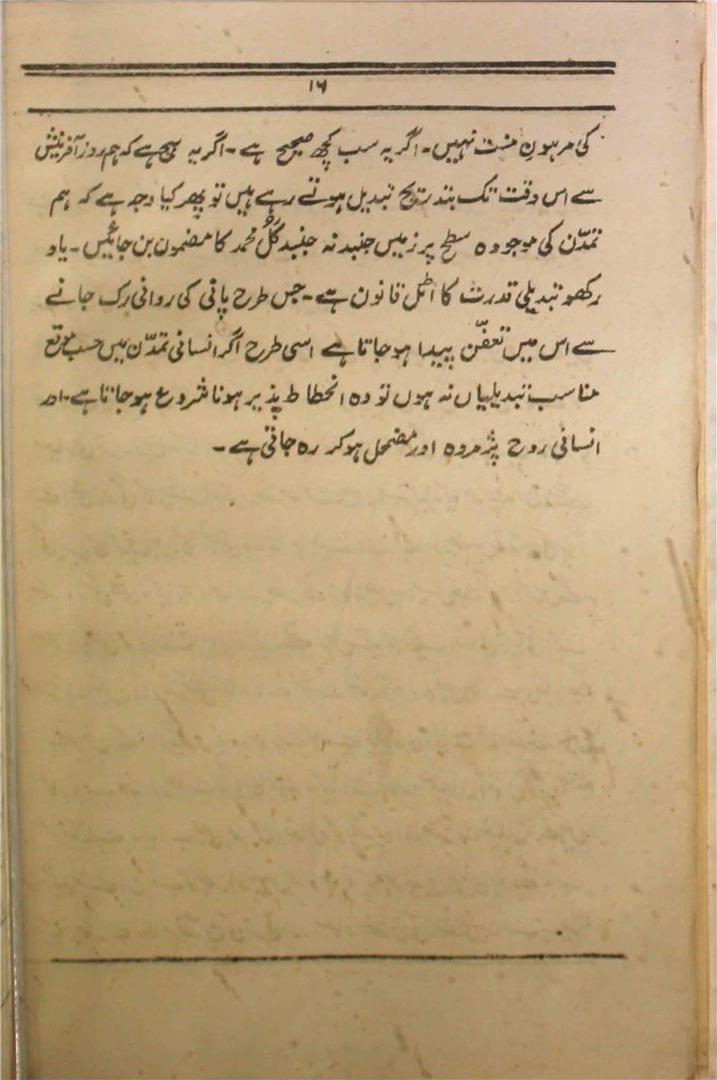 ۱۶
کی مرہونِ منت نہیں۔ اگر یہ سب کچھ صحیح ہے۔ اگر یہ سچ ہے کہ ہم روز آفرینش
سے اس وقت تک بتدریج تبدیل ہوتے رہے ہیں تو پھر کیا وجہ ہے کہ ہم
تمدّن کی موجودہ سطح پر زمیں جنبد نہ جنبد گل محمد کا مضمون بن جائیں۔ یاد
رکھو تبدیلی قدرت کا اٹل قانون ہے۔ جس طرح پانی کی روانی رک جانے
سے اس میں تعفّن پیدا ہو جاتا ہے اسی طرح اگر انسانی تمدّن میں حسب موقع
مناسب تبدیلیاں نہ ہوں تو وہ انحطاط پذیر ہونا شروع ہو جاتا ہے۔ اور
انسانی روح پژمردہ اور مضمحل ہو کر رہ جاتی ہے۔